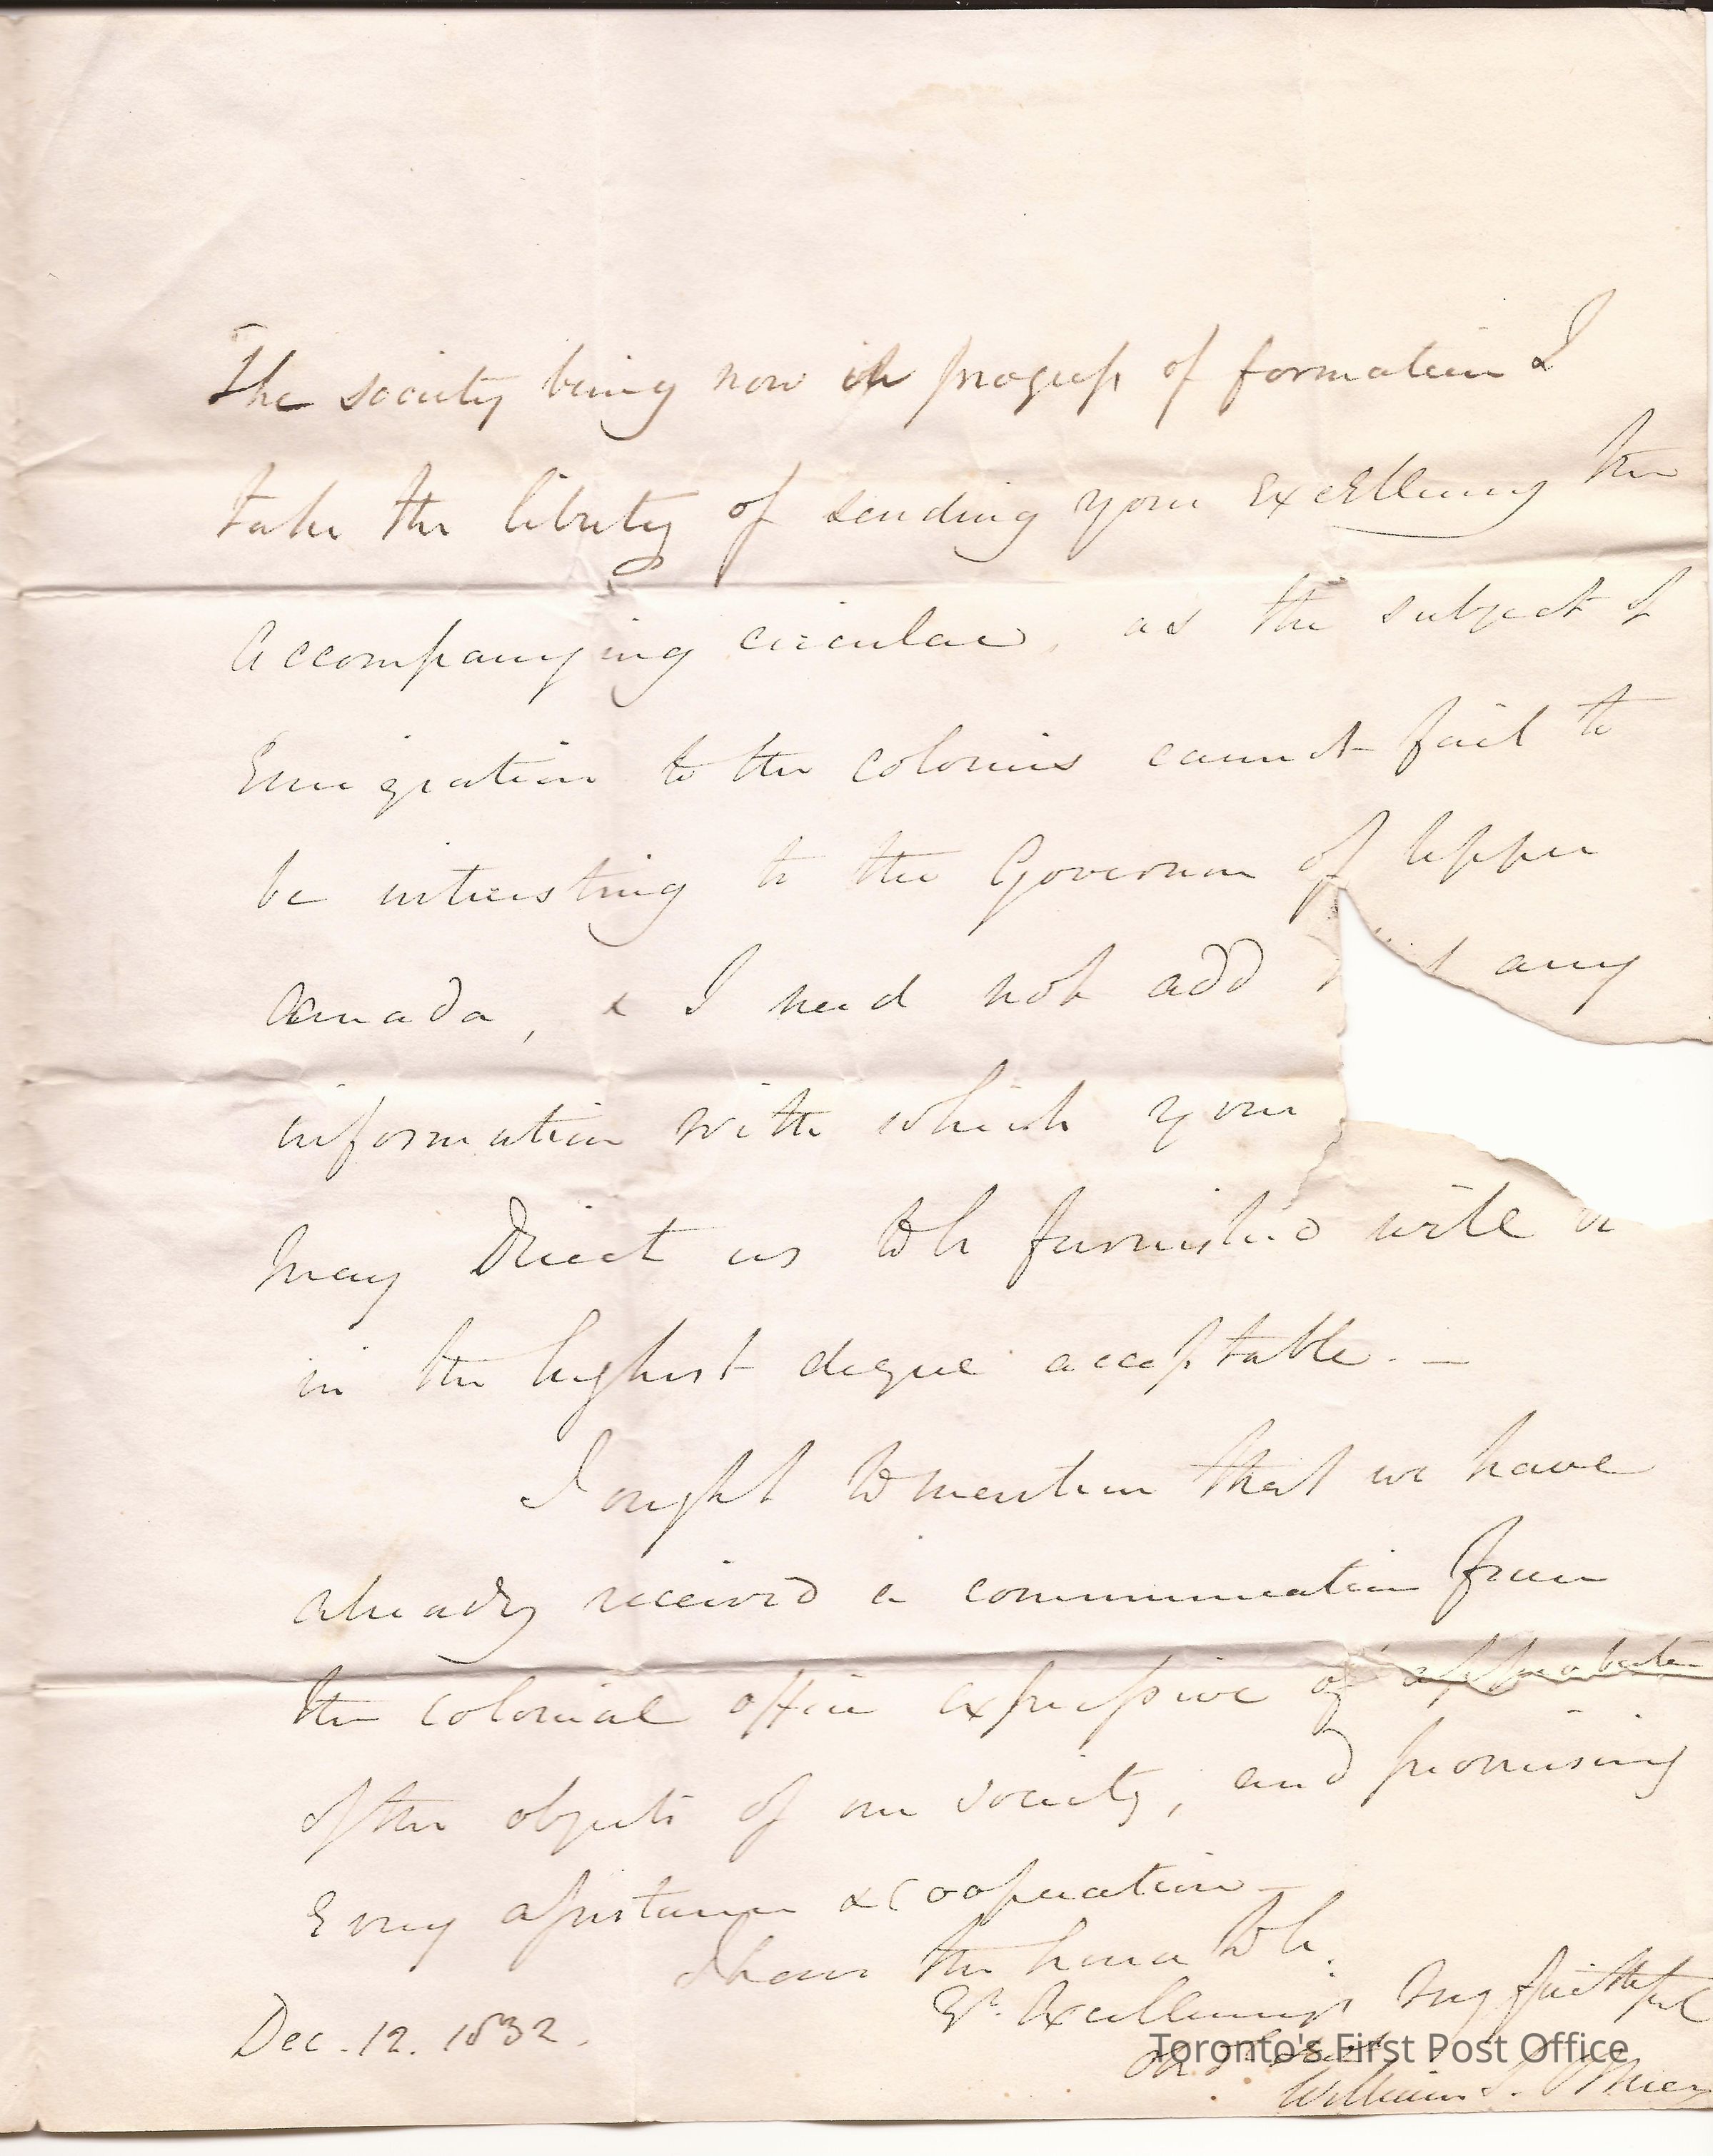 The society being now in progress of formation I
take the liberty of sending your Excellency the
accompanying circular, as the subject of
Emigration to the colonies cannot fail to
be interesting to the Governor of Upper
Canada, & I need not add any
information with which your
may direct us to be furnished will be
in the highest degree acceptable. —
I ought to mention that we have
already received a communication from
the colonial office expressive of approbation
of the objects of our society, and promising
Every assistance & cooperation —
I have the honor to be.
Yr. Excellency's very faithful
Dec. 12. 1832.
Toronto's First Post Office
William S. O'Brien